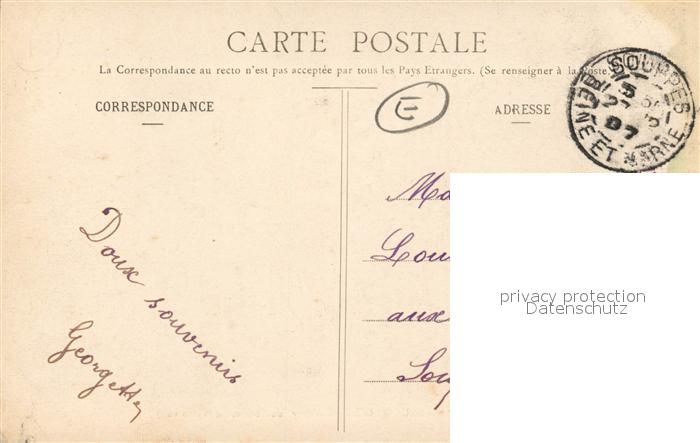 CARTE POSTALE
La Correspondance au recto n'est pas acceptée par tous les Pays Etrangers. (Se renseigner à la Poste.
CORRESPONDANCE
E
ADRESSE
SOUPPES
SEINE ET MARNE
07
Doux souvenirs
Georgette
aux
privacy protection
Datenschutz